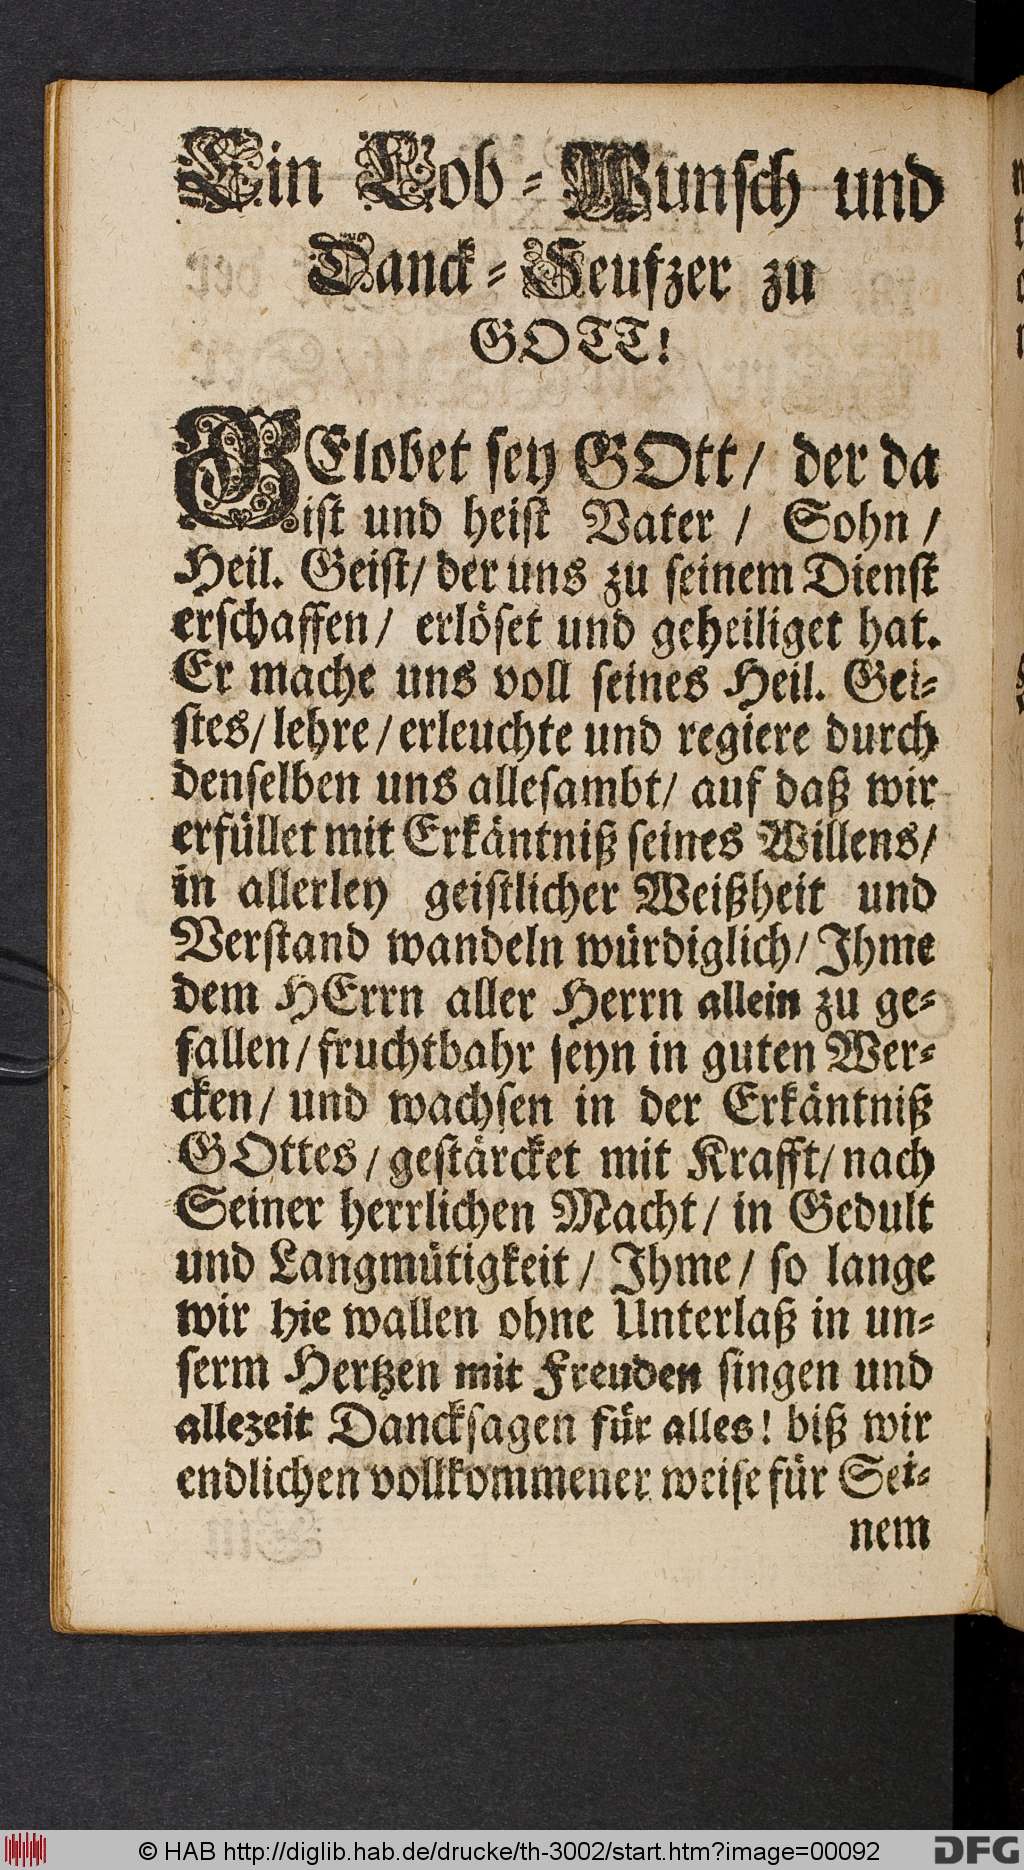 Ein Lob-Wunsch und
Danck-Seufzer zu
GOTT!
GElobet sey GOtt/ der da
ist und heist Vater / Sohn /
Heil. Geist/ der uns zu seinem Dienst
erschaffen/ erlöset und geheiliget hat.
Er mache uns voll seines Heil. Gei-
stes/ lehre / erleuchte und regiere durch
denselben uns allesambt/ auf daß wir
erfüllet mit Erkäntniß seines Willens/
in allerley geistlicher Weißheit und
Verstand wandeln würdiglich/ Jhme
dem HErrn aller Herrn allein zu ge-
fallen / fruchtbahr seyn in guten Wer-
cken/ und wachsen in der Erkäntniß
GOttes / gestärcket mit Krafft/ nach
Seiner herrlichen Macht/ in Gedult
und Langmütigkeit / Jhme/ so lange
wir hie wallen ohne Unterlaß in un-
serm Hertzen mit Freuden singen und
allezeit Dancksagen für alles! biß wir
endlichen vollkommener weise für Sei-
nem
© HAB http://diglib.hab.de/drucke/th-3002/start.htm?image=00092
DFG